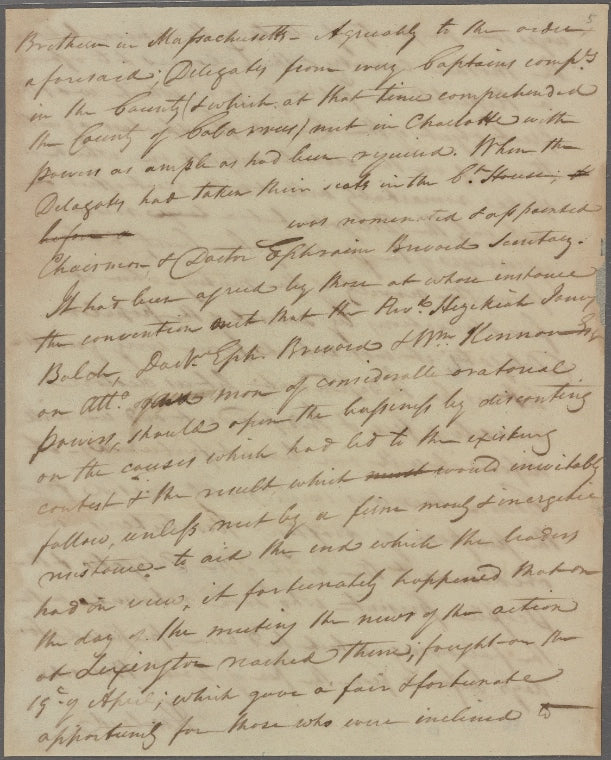 5
Brethren in Massachusetts – Agreeably to the order
aforesaid; Delegates from every Captains comp.y
in the County (& which at that time comprehended
the County of Cabarrus) met in Charlotte with
powers as ample as had been required. When the
Delagates had taken their seats in the Ct. House, to
before a was nominated & appointed
Chairman, & Doctor Ephraim Brevard Secretary.
It had been agreed by those at whose instance
the convention met that the Revd. Hezekiah James
Balch, Doctr. Eph. Brevard & Wm. Kennon Esqr
an Atto. men of considerable oratorial
powers, should open the bussiness by discanting
on the causes which had led to the existing
contest & the result which must would inevitably
follow, unless met by a firm manly & inergetic
resistance – to aid the end which the leaders
had in view, it fortunately happened that on
the day of the meeting the news of the action
at Lexington reached them, fought on the
19th of April; which gave a fair & fortunate
opportunity for those who were inclined to